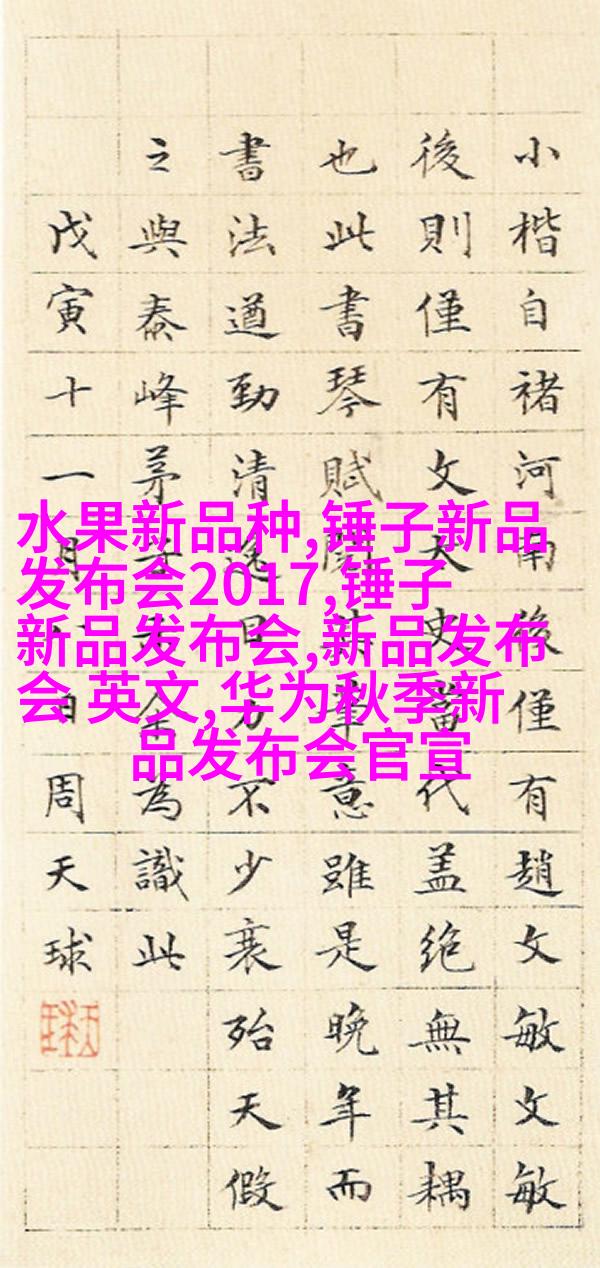 小楷自褚河南後僅有趙文敏文敏
後則僅有文太史當代蓋絕無其耦
也此書琴賦其筆意雖是晚年而
書法遒勁清逸日力不少衰殆天假
之與泰峰茅余為識此
戊寅十一月日周天球
水果新品种,锤子新品
发布会2017,锤子
新品发布会,新品发布
会 英文,华为秋季新
品发布会官宣